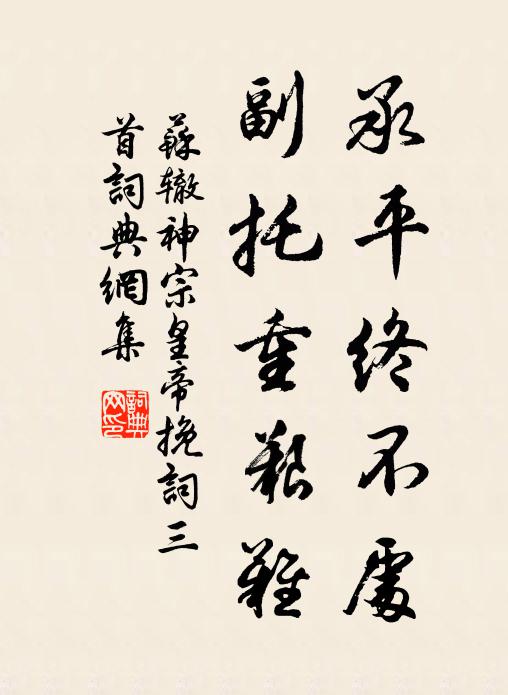 承平終不處
副托重艱難
蘇辙神宗皇帝挽詞三
首詞典網集
詞典
网印